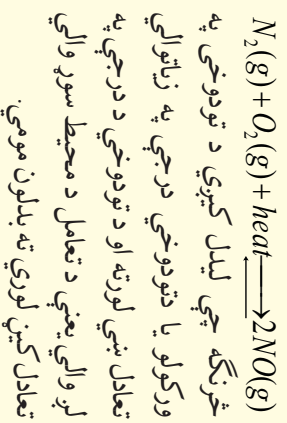 N₂(g) + O₂(g) + heat ⇌ 2NO(g)
څرنګه چې لیدل کیږي د تودوخې په
ورکولو یا دتودوخې درجې په زیاتوالي
تعادل ښي لورته او د تودوخې د درجې په
لږ والي یعنې د تعامل د محیط سوړ والي
تعادل کیڼ لوري ته بدلون مومي.